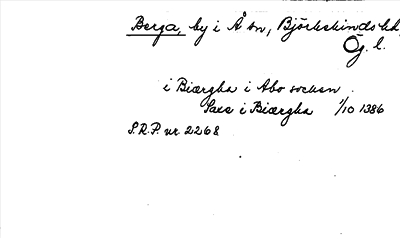 Berga, by i Å sn, Björkekinds hd,
Ög. l.
i Biærgha i Abo socken.
Saxe i Biærgha 1/10 1386
S.R.P. nr 2268